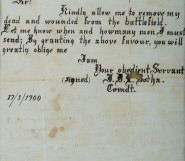 Sir!
Kindly allow me to remove my
dead and wounded from the battlefield.
Let me know when and howmany men I must
send; By granting the above favour, you will
greatly oblige me
I am
Your obedient Servant
(signed) Botha.
Comdt.
17/1/1900